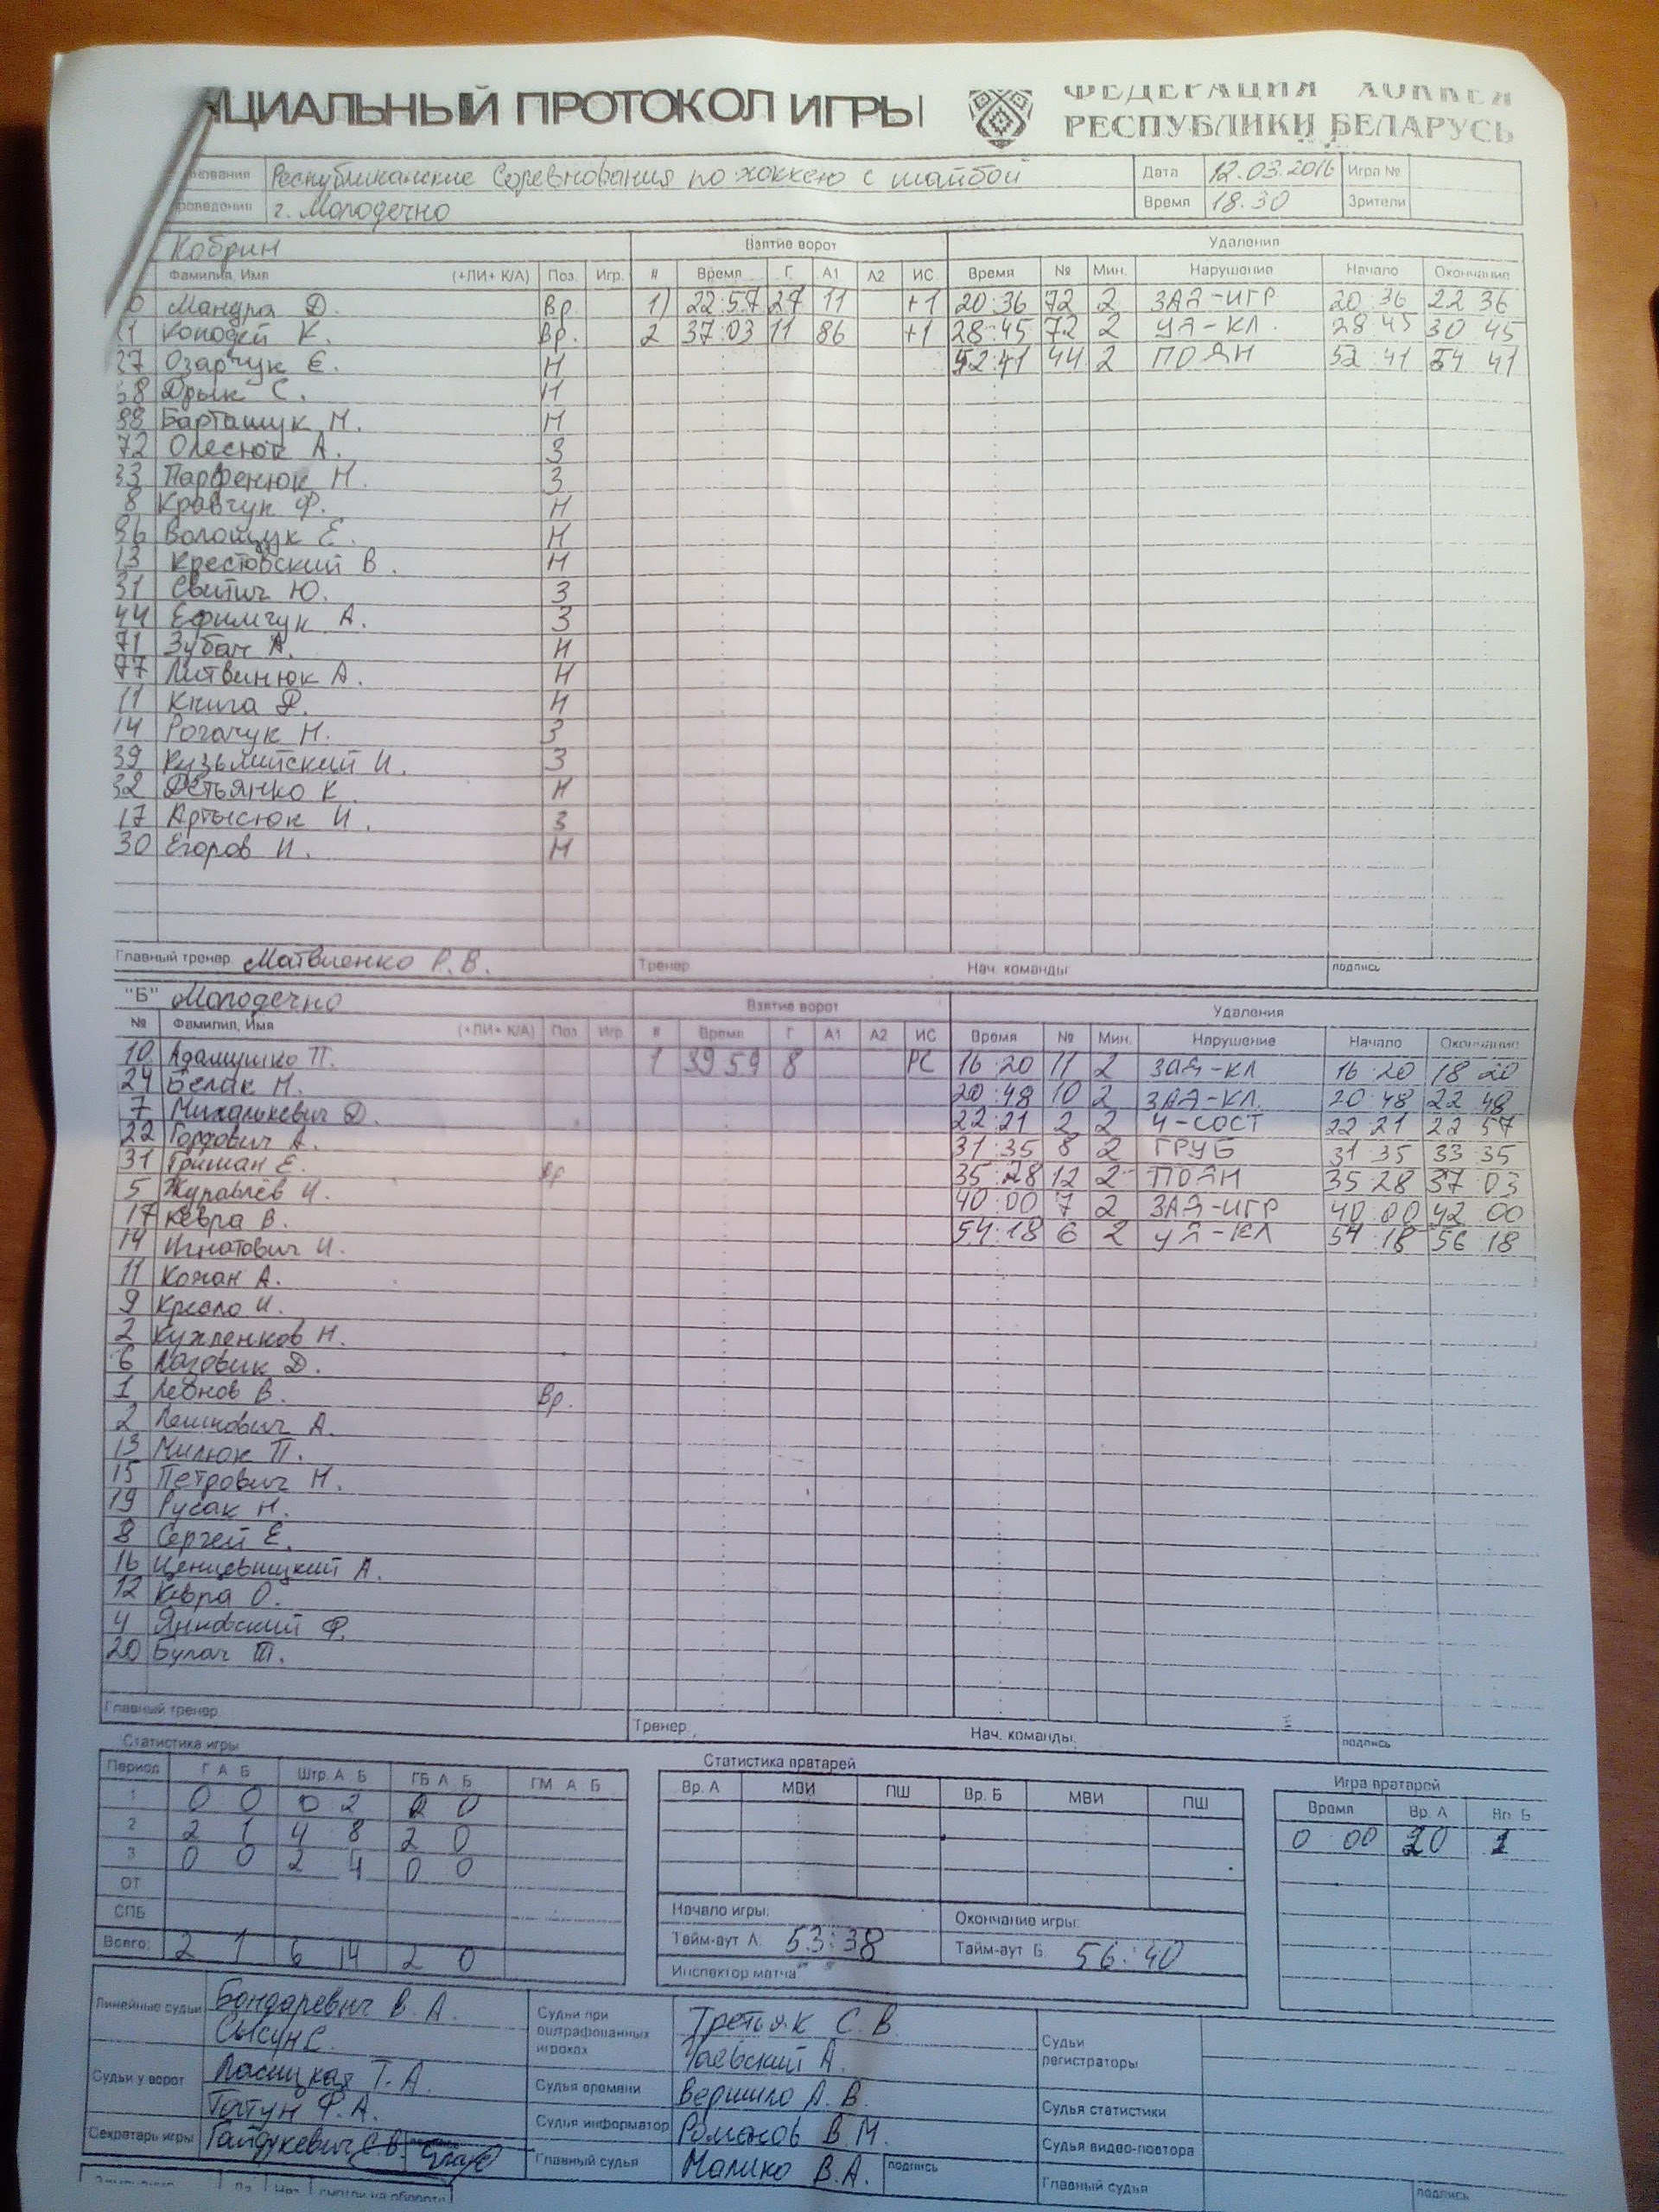 ЦИАЛЬНЫЙ ПРОТОКОЛ ИГРЫ
ФЕДЕРАЦИЯ ХОККЕЯ
РЕСПУБЛИКИ БЕЛАРУСЬ
Республиканские Соревнования по хоккею с шайбой Дата 12.03.2016 Игра №
проведения г. Молодечно Время 18.30 Зрители
Кобрин Взятие ворот Удаления
Фамилия, Имя (+ПИ+ К/А) Поз. Игр. # Время Г. А1 А2 ИС Время № Мин. Нарушение Начало Окончание
0 Мандра Д. Вр. 1) 22:57 27 11 +1 20:36 72 2 ЗАД-ИГР 20 36 22 36
Колодей К. Вр. 2 37:03 11 86 +1 28:45 72 2 УД-КЛ. 28 45 30 45
27 Озарчук Е. Н 52:41 44 2 ПОДН 52 41 54 41
Дрык С. Н
88 Барташук Н. Н
72 Олесюк А. З
33 Парфенюк Н. З
8 Кравчук Ф. Н
86 Волощук Е. Н
13 Крестовский В. Н
31 Свитич Ю. З
44 Ефимчук А. З
71 Зубач А. Н
77 Литвинюк А. Н
11 Книга Д. Н
14 Рогачук Н. З
39 Кузьмитский И. З
32 Детьянко К. Н
17 Артысюк И. З
30 Егоров И. Н
Главный тренер Матвиенко Р.В. Тренер Нач. команды подпись
"Б" Молодечно Взятие ворот Удаления
№ Фамилия, Имя (+ПИ+ К/А) Поз. Игр. # Время Г А1 А2 ИС Время № Мин. Нарушение Начало Окончание
10 Адамушко П. 1 39 59 8 РС 16:20 11 2 ЗАД-КЛ 16 20 18 20
24 Белак Н. 20:48 10 2 ЗАД-КЛ. 20 48 22 48
7 Михалькевич Д. 22:21 2 2 Ч-СОСТ 22 21 22 57
22 Гордович А. 31:35 8 2 ГРУБ 31 35 33 35
31 Гришан Е. Вр 35:28 12 2 ПОДН 35 28 37 03
5 Журавлёв И. 40:00 7 2 ЗАД-ИГР 40 00 42 00
17 Кевра В. 54:18 6 2 УД-КЛ 54 18 56 18
14 Игнатович И.
11 Кохан А.
9 Кресло И.
2 Кухленков Н.
6 Лаговик Д.
1 Леонов В. Вр.
2 Лешкович А.
13 Милюк П.
15 Петрович Н.
19 Русак Н.
8 Сергей Е.
16 Ценцевицкий А.
12 Кевра О.
4 Янковский Ф.
20 Булач Т.
Главный тренер Тренер Нач. команды подпись
Статистика игры Статистика вратарей Игра вратарей
Период Г А Б Штр. А Б ГБ А Б ГМ А Б Вр. А МВИ ПШ Вр. Б МВИ ПШ Время Вр. А Вр. Б
1 0 0 0 2 0 0 0 00 20 1
2 2 1 4 8 2 0
3 0 0 2 4 0 0
ОТ
СПБ
Всего: 2 1 6 14 2 0
Начало игры: Окончание игры:
Тайм-аут А: 53:38 Тайм-аут Б: 56:40
Инспектор матча
Линейные судьи Бондаревич В.А. Судьи при оштрафованных игроках Третьяк С.В. Судьи регистраторы
Сысун С. Чаевский А.
Судьи у ворот Ласицкая Т.А. Судья времени Вершило А.В. Судья статистики
Гаптун Ф.А. Судья информатор Романов В.М. Судья видео-повтора
Секретарь игры Гайдукевич С.В. Главный судья Малико В.А. подпись Главный судья подпись